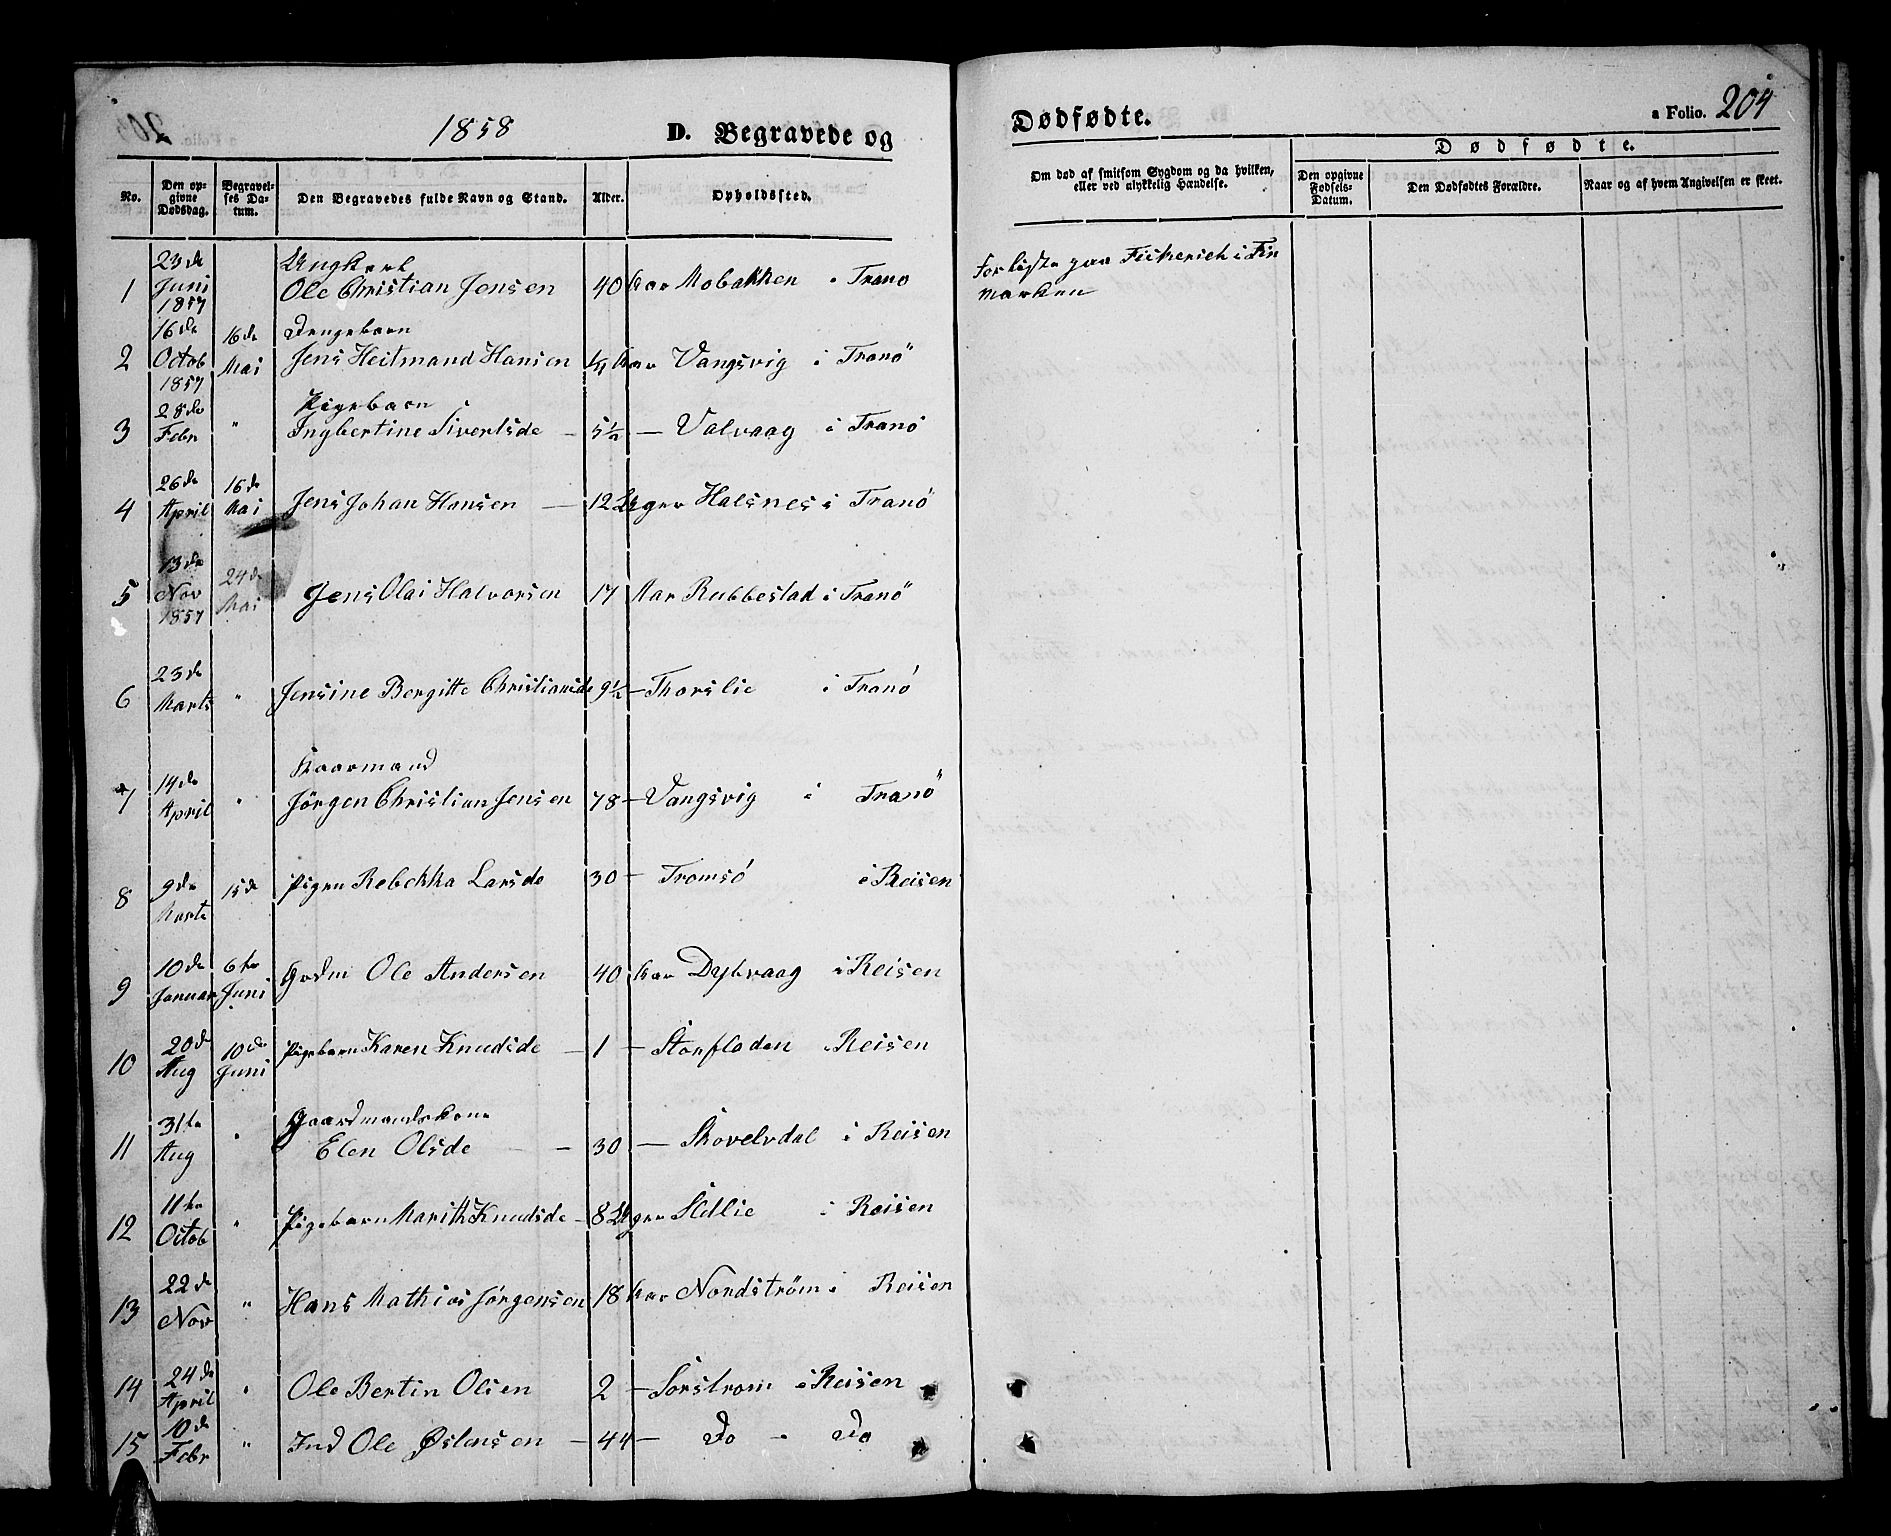 1858 D. Begravede og
Dødfødte.
a Folio. 204
No.
Den op-
givne
Dødsdag.
Begravel-
ses Da-
tum.
Den Begravedes fulde Navn og Stand.
Alder.
Opholdssted.
Om død af smitsom Sygdom og da hvilken,
eller ved ulykkelig Hændelse.
Dødfødte.
Den opgivne
Fødsels-
Datum.
Den Dødfødtes Forældre.
Naar og af hvem Angivelsen er skeet.
1 23de Juni 1857 Ungkarl
Ole Christian Jensen 40 Aar Mobakken i Tranø
Forliste paa Fiskerieh i Fin
marken
2 16de Octob 1857 16de Mai Drengebarn
Jens Heitmand Hansen Aar Vangsvig i Tranö
3 28de Febr " Pigebarn
Ingbertine Sivertsde – 5½ — Valvaag i Tranø
4 26de April 16de Mai Jens Johan Hansen — 12 Uger Halsnes i Tranö
5 13de Nov 1857 24de Mai Jens Olai Halvorsen 17 Aar Rubbestad i Tranö
6 23de Marts " Jensine Bergitte Christiansde 9½ – Thorslie i Tranø
7 14de April " Kaarmand
Jörgen Christian Jensen 78 – Vangsvig i Tranö
8 9de Marts 15de Pigen Rebekka Larsde 30 – Tromsø i Reisen
9 10de Januar 6te Juni Grdm Ole Andersen 40 Aar Dybvaag i Reisen
10 20de Aug 10de Juni Pigebarn Karen Knudsde – 1 – Storfladen i Reisen
11 31te Aug " Gaardmandskone
Elen Olsde – 30 — Skovelvdal i Reisen
12 11te Octob " Pigebarn Marith Knudsde – 8 Uger Sldlie i Reisen
13 22de Nov " Hans Mathias Jørgensen 18 Aar Nordstrøm i Reisen
14 24de April " Ole Bertin Olsen 2 – Sorstrom i Reisen
15 10de Febr " Ind Ole Østensen – 44 – Do " Do